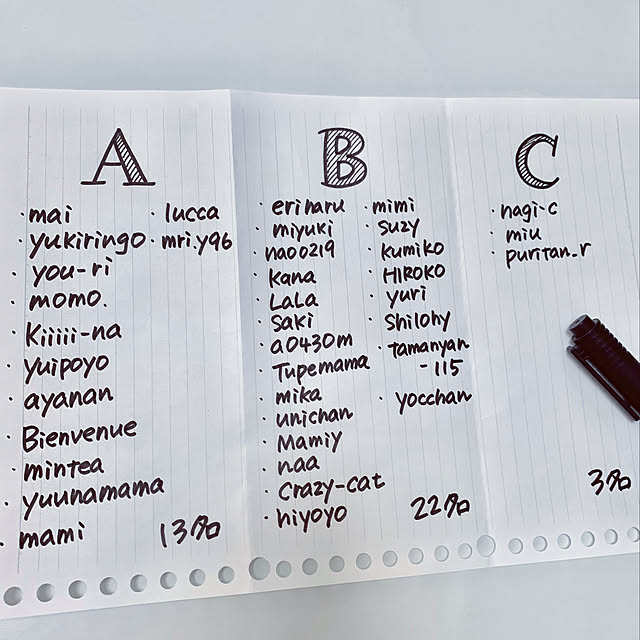 A
· mai
· yukiringo
· you-ri
· momo.
· Kiiiii-na
· yuipoyo
· ayanan
· Bienvenue
· mintea
· yuunamama
· mami
· lucca
· mri.y96
13名
B
· eriharu
· miyuki
· nao0219
· kana
· LaLa
· Saki
· a0430m
· Tupemama
· mika
· unichan
· Mamiy
· naa
· Crazy-cat
· hiyoyo
· mimi
· suzy
· kumiko
· HIROKO
· yuri
· Shilohy
· tamanyan
-115
· yocchan
22名
C
· nagi-c
· miu
· puritan_r
3名